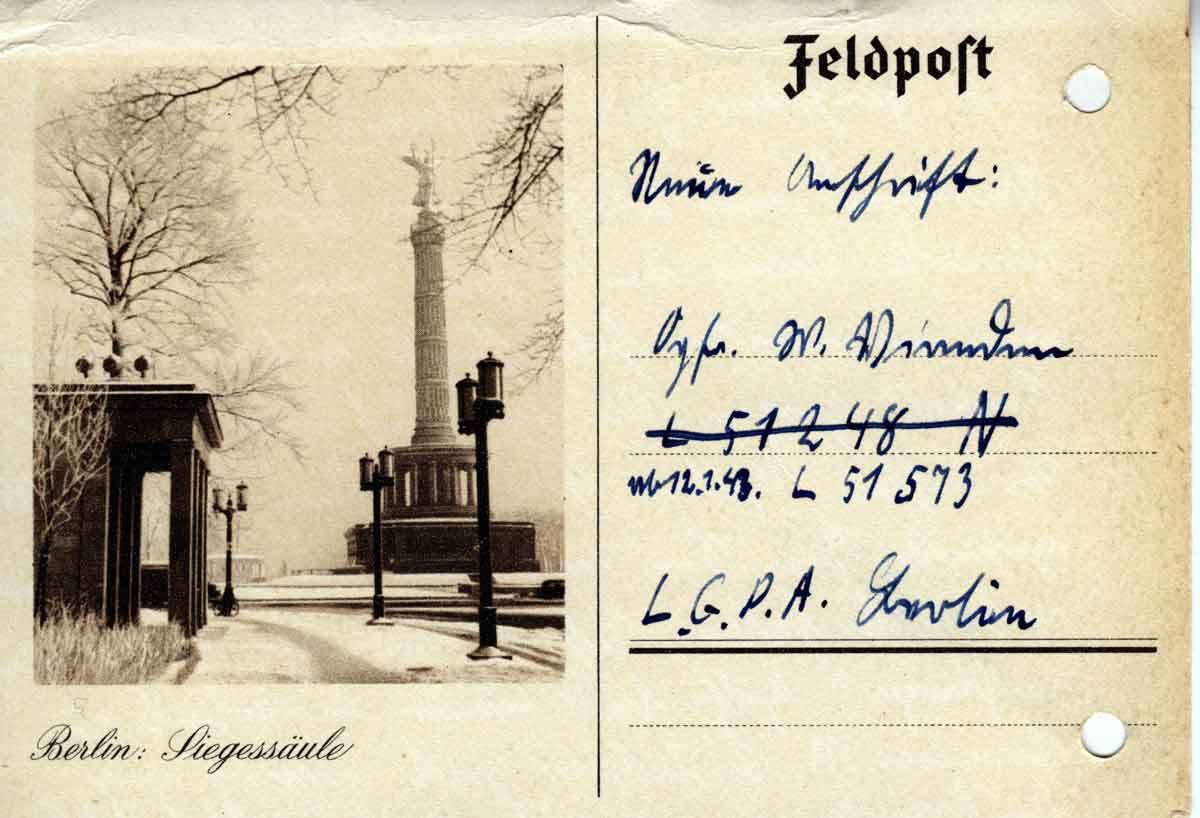 Feldpost
Neue Anschrift:
Ogfr. W. Vianden
L 51248 N
ab 12.1.43. L 51573
L.G.P.A. Berlin
Berlin: Siegessäule